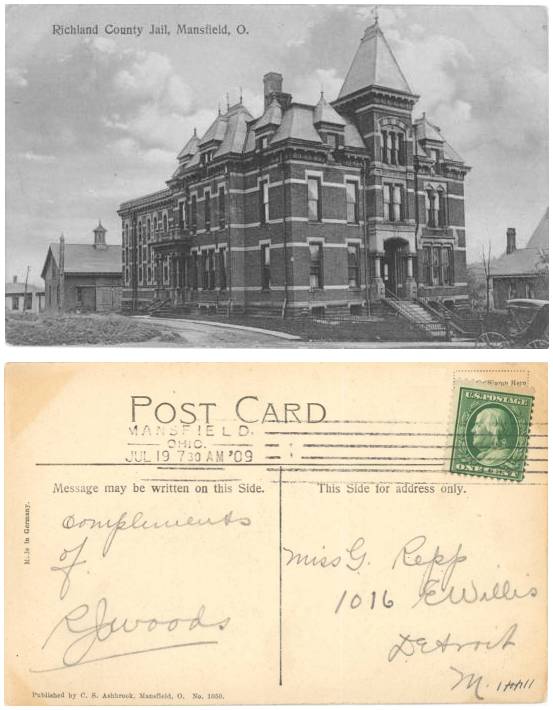 Richland County Jail, Mansfield, O.
POST CARD
MANSFIELD.
OHIO.
JUL 19 7 30 AM '09
U.S. POSTAGE
ONE CENT
Message may be written on this Side.
This Side for address only.
complements
of
RJWoods
Miss G. Repp
1016 E Willis
Detroit
in Germany.
Published by C. S. Ashbrook, Mansfield, O. No. 1050.